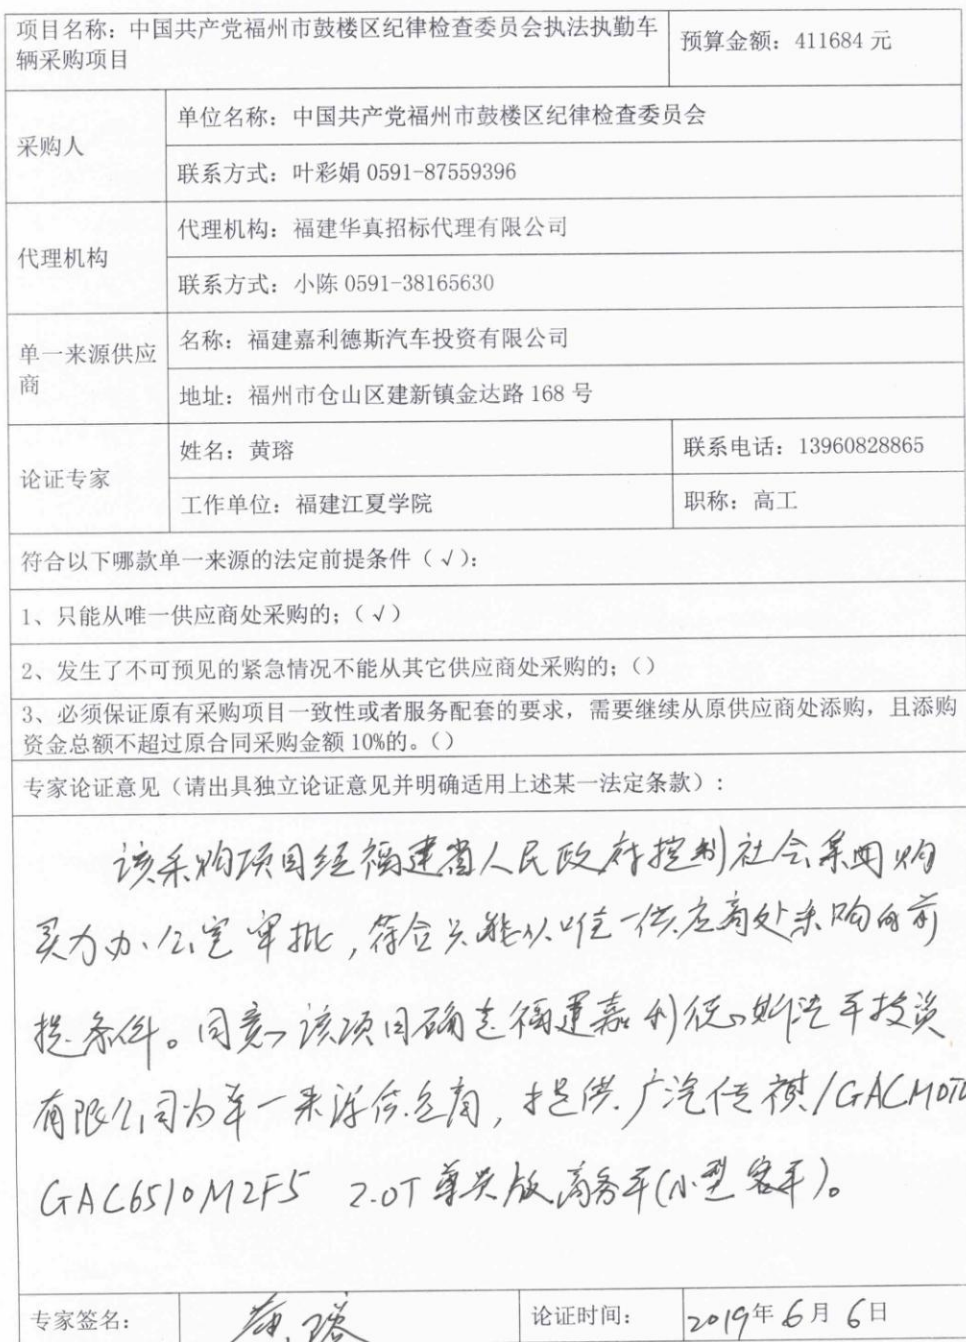 项目名称：中国共产党福州市鼓楼区纪律检查委员会执法执勤车
辆采购项目
预算金额：411684 元
采购人
单位名称：中国共产党福州市鼓楼区纪律检查委员会
联系方式：叶彩娟 0591-87559396
代理机构
代理机构：福建华真招标代理有限公司
联系方式：小陈 0591-38165630
单一来源供应
商
名称：福建嘉利德斯汽车投资有限公司
地址：福州市仓山区建新镇金达路 168 号
论证专家
姓名：黄瑢
联系电话：13960828865
工作单位：福建江夏学院
职称：高工
符合以下哪款单一来源的法定前提条件（√）：
1、只能从唯一供应商处采购的；（√）
2、发生了不可预见的紧急情况不能从其它供应商处采购的；（）
3、必须保证原有采购项目一致性或者服务配套的要求，需要继续从原供应商处添购，且添购
资金总额不超过原合同采购金额 10%的。（）
专家论证意见（请出具独立论证意见并明确适用上述某一法定条款）：
该采购项目经福建省人民政府控制社会集团购
买力办公室审批，符合只能从唯一供应商处采购的前
提条件。同意该项目确定福建嘉利德斯汽车投资
有限公司为单一来源供应商，提供广汽传祺/GACMOTO
GAC6510M2F5 2.0T 尊贵版商务车(小型客车)。
专家签名：
黄瑢
论证时间：
2019年 6月 6日